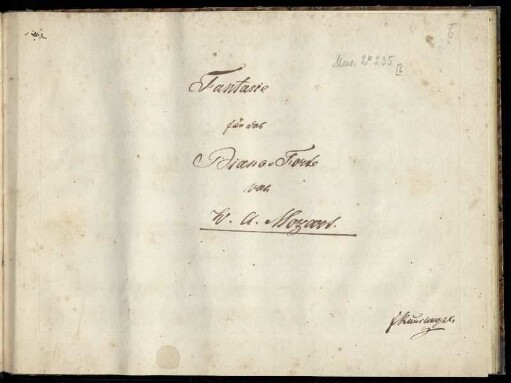 Mus. 2° 235
Fantasie
für das
Piano-Forte
von
W. A. Mozart.